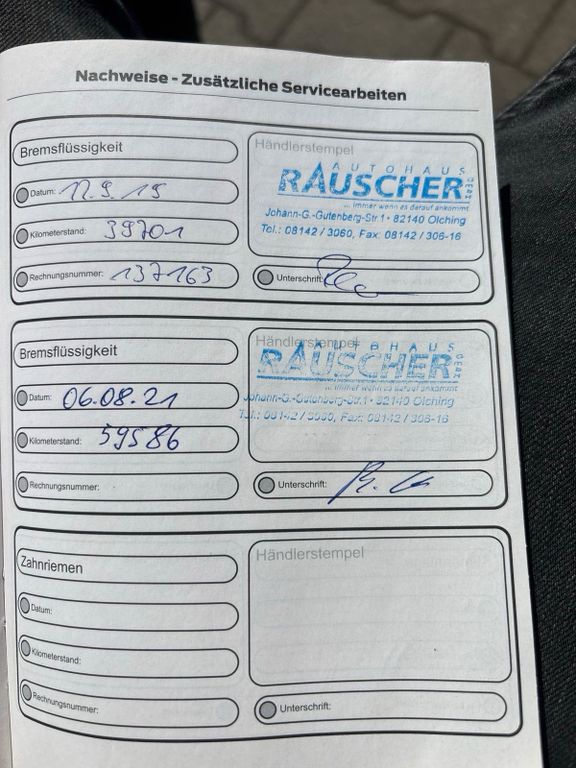 Nachweise - Zusätzliche Servicearbeiten
Bremsflüssigkeit
Datum: 17.9.19
Kilometerstand: 39701
Rechnungsnummer: 137163
Händlerstempel
AUTOHAUS
RAUSCHER GmbH
... immer wenn es darauf ankommt
Johann-G.-Gutenberg-Str.1 • 82140 Olching
Tel.: 08142 / 3060, Fax: 08142 / 306-16
Unterschrift:
Bremsflüssigkeit
Datum: 06.08.21
Kilometerstand: 59586
Rechnungsnummer:
Händlerstempel
RAUSCHER
... immer wenn es darauf ankommt
Johann-G.-Gutenberg-Str.1 • 82140 Olching
Tel.: 08142 / 3060, Fax: 08142 / 306-16
Unterschrift:
Zahnriemen
Datum:
Kilometerstand:
Rechnungsnummer:
Händlerstempel
Unterschrift: